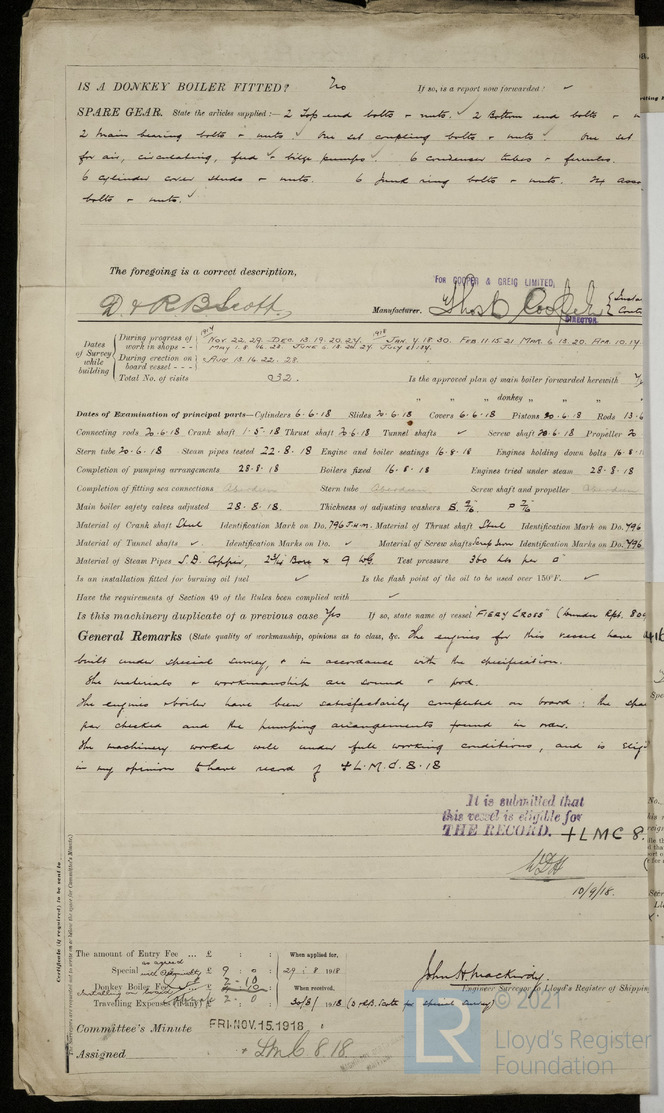 IS A DONKEY BOILER FITTED? No If so, is a report now forwarded? ✓
SPARE GEAR. State the articles supplied:— 2 Top end bolts & nuts. ✓ 2 Bottom end bolts & n
2 main bearing bolts & nuts ✓ One set coupling bolts & nuts. One set
for air, circulating, feed & bilge pumps ✓ 6 condenser tubes & ferrules.
6 cylinder cover studs & nuts. 6 Junk ring bolts & nuts. asso
bolts & nuts. ✓
The foregoing is a correct description,
FOR COOPER & GREIG LIMITED,
D & R B Scott, Manufacturer. Thos Cooper
DIRECTOR.
Dates of Survey while building
During progress of work in shops - - 1917 Nov 22. 29. DEC. 13. 19. 20. 24. 1918 JAN. 4. 18. 30. FEB 11 15 21 MAR. 6. 13. 20. APR. 10. 17.
MAY 1. 8. 16. 25. JUNE 6. 13. 20. 24. JULY
During erection on board vessel - - - AUG 13. 16. 22. 28.
Total No. of visits 32. Is the approved plan of main boiler forwarded herewith
" " " donkey " " "
Dates of Examination of principal parts—Cylinders 6.6.18 Slides 20.6.18 Covers 6.6.18 Pistons 20.6.18 Rods 13.6
Connecting rods 20.6.18 Crank shaft 1.5.18 Thrust shaft 20.6.18 Tunnel shafts ✓ Screw shaft 20.6.18 Propeller 20
Stern tube 20.6.18 Steam pipes tested 22.8.18 Engine and boiler seatings 16.8.18 Engines holding down bolts 16.8.1
Completion of pumping arrangements 28.8.18 Boilers fixed 16.8.18 Engines tried under steam 28.8.18
Completion of fitting sea connections Aberdeen Stern tube Aberdeen Screw shaft and propeller Aberdeen
Main boiler safety valves adjusted 28.8.18. Thickness of adjusting washers
Material of Crank shaft Steel Identification Mark on Do. 796 J.H.M. Material of Thrust shaft Steel Identification Mark on Do. 796
Material of Tunnel shafts ✓ Identification Marks on Do. ✓ Material of Screw shafts Scrap Iron Identification Marks on Do. 796
Material of Steam Pipes S.D. Copper, 2¾ Bore x 9 WG. Test pressure 360 lbs per □"
Is an installation fitted for burning oil fuel ✓ Is the flash point of the oil to be used over 150°F. ✓
Have the requirements of Section 49 of the Rules been complied with ✓
Is this machinery duplicate of a previous case Yes If so, state name of vessel "FIERY CROSS" (Dundee Rpt. 80
General Remarks (State quality of workmanship, opinions as to class, &c. The engines for this vessel have
built under special survey, & in accordance with the specification.
The materials & workmanship are sound & good.
The engines & boiler have been satisfactorily completed on board: the spar
gear checked and the pumping arrangements found in order.
The machinery worked well under full working conditions, and is elig
in my opinion to have record of + L.M.C. 8.18
It is submitted that
this vessel is eligible for
THE RECORD. + LMC 8.
10/9/18.
Certificate (if required) to be sent to
The amount of Entry Fee ... £ : : When applied for,
as agreed
Special with Admiralty £ 9 : 0 : 29.8.1918
Donkey Boiler Fee £ 2 - 10 When received,
Travelling Expenses (if any) £ 2 : 0 30/8/1918 (D & R.B. Scott for special survey)
John H Mackirdy.
Engineer Surveyor to Lloyd's Register of Shippin
Committee's Minute FRI. NOV. 15. 1918
Assigned + LMC 8.18
© 2021
LR
Lloyd's Register
Foundation